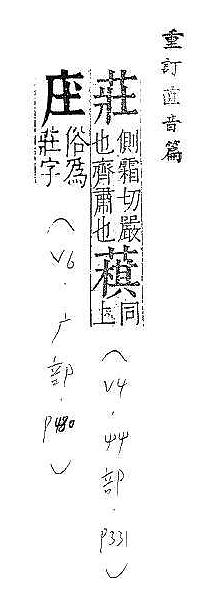 重訂直音篇
莊側霜切嚴也齊肅也𦵏同上
(V4.艸部.p331)
庄俗為莊字
(V6.广部.p480)